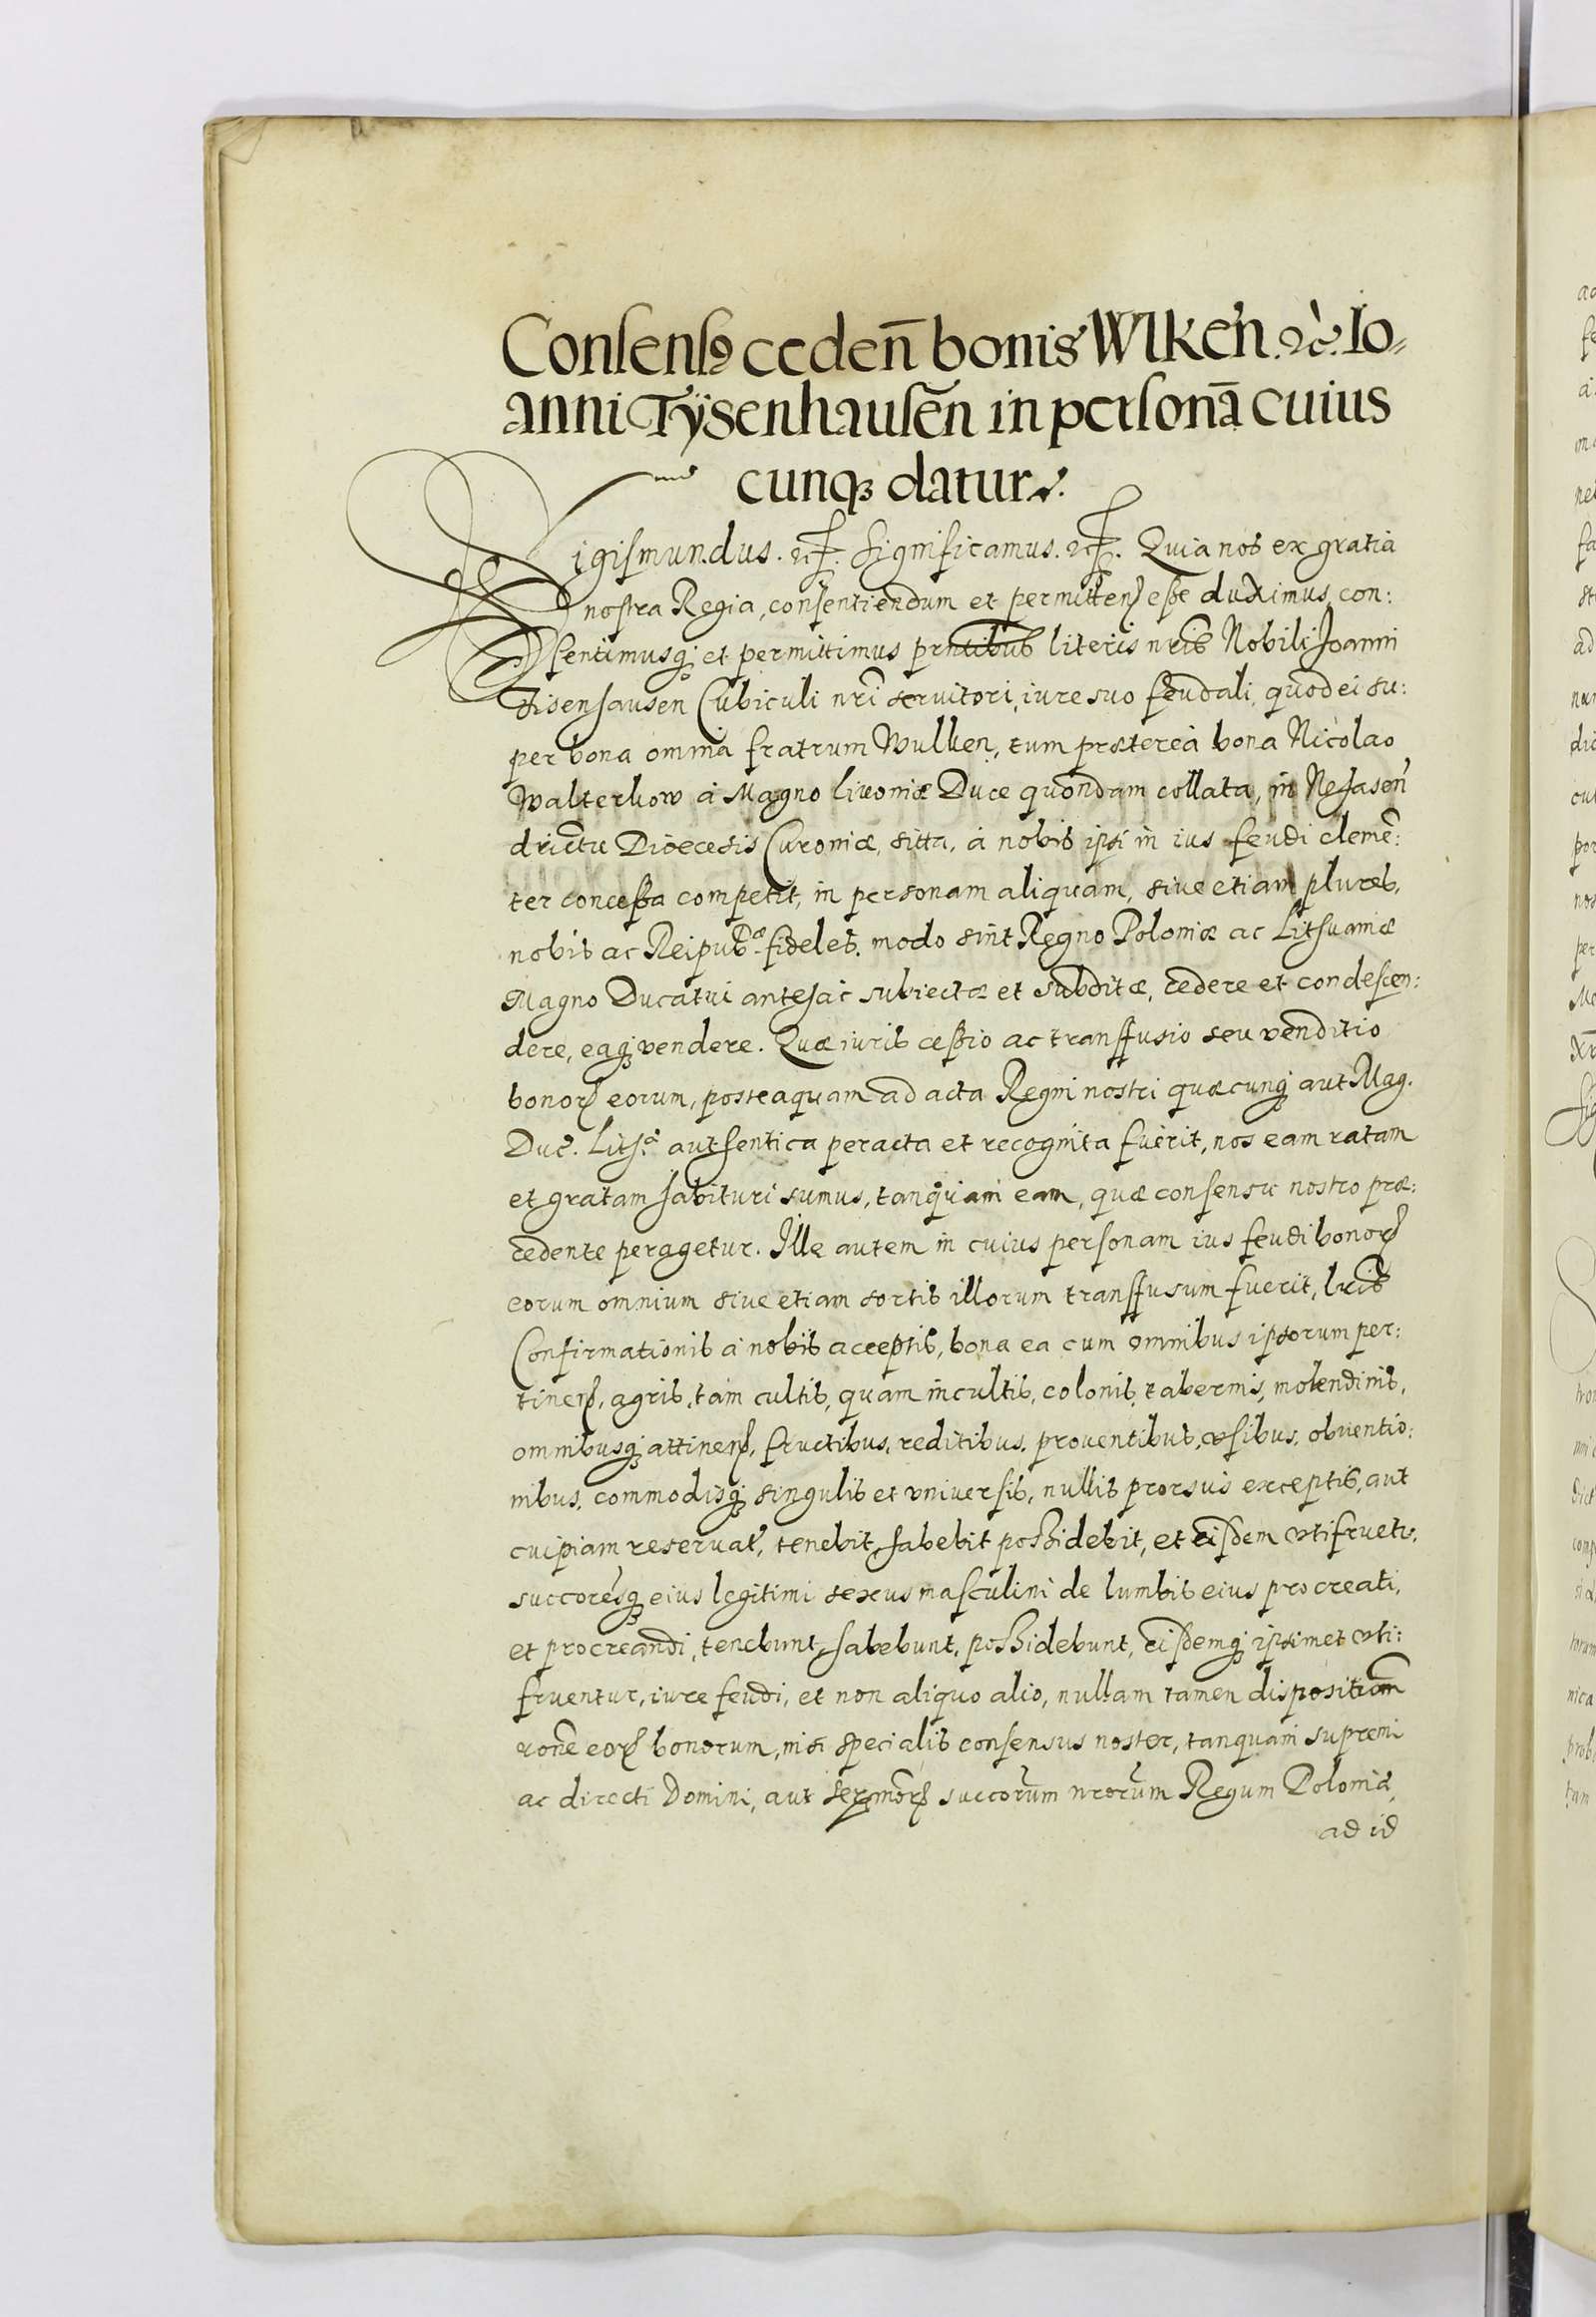 Consensꝯ cedeñ bonis Wlken. ⁊c̀. Io⸗
anni Tÿsenhausẽn in personã cuius
cunqꝫ datur.
Sigismundus. ⁊c. Significamus. ⁊c. Quia nos ex gratia
nostra Regia, consentiendum et permittenꝭ esse duximus, con:
sentimusqꝫ et permittimus prntibus literis nris̃ Nobili Joanni
Tisenhausen Cubiculi nrĩ seruitori, iure suo feudali, quod ei su:
per bona omnia fratrum Wulken, tum præterea bona Nicolao
Walterkow à Magno Liuoniæ Duce quondam collata, in Nehasen̄
districtu Diœcesis Curoniæ, sitta, à nobis ipsi in ius feudi clemẽ:
ter concessa competit, in personam aliquam, siue etiam plures,
nobis ac Reipubᶜᵃ fideles, modo sint Regno Poloniæ ac Lithuaniæ
Magno Ducatui antehac subiectæ et subditæ, cedere et condescen:
dere, eaqꝫ vendere. Quæ iuris cessio ac transfusio seu venditio
bonorꝭ eorum, posteaquam ad acta Regni nostri quæcunqꝫ aut Mag.
Duc̃. Lith.ᵃ authentica peracta et recognita fuerit, nos eam ratam
et gratam habituri sumus, tanquam eam, quæ consensu nostro præ:
cedente peragetur. Ille autem in cuius personam ius feudi bonorꝭ
eorum omnium siue etiam sortis illorum transfusum fuerit, lris̃
Confirmationis à nobis acceptis, bona ea cum omnibus ipsorum per:
tinenꝭ, agris, tam cultis, quam incultis, colonis, tabernis, molendinis,
omnibusqꝫ attinenꝭ, fructibus, reditibus, prouentibus, vsibus, obuentio:
nibus, commodisqꝫ singulis et vniuersis, nullis prorsus exceptis, aut
cuipiam reseruat̃, tenebit, habebit possidebit, et eisdem vtifruetr,
succoresqꝫ eius legitimi sexus masculini de lumbis eius procreati,
et procreandi, tenebunt, habebunt, possidebunt, eisdemqꝫ ipsimet vti:
fruentur, iure feudi, et non aliquo alio, nullam tamen dispositiom̃
rone eorꝭ bonorum, nisi specialis consensus noster, tanquam supremi
ac directi Domini, aut sermorꝭ succorum nrorum Regum Poloniæ,
ad id